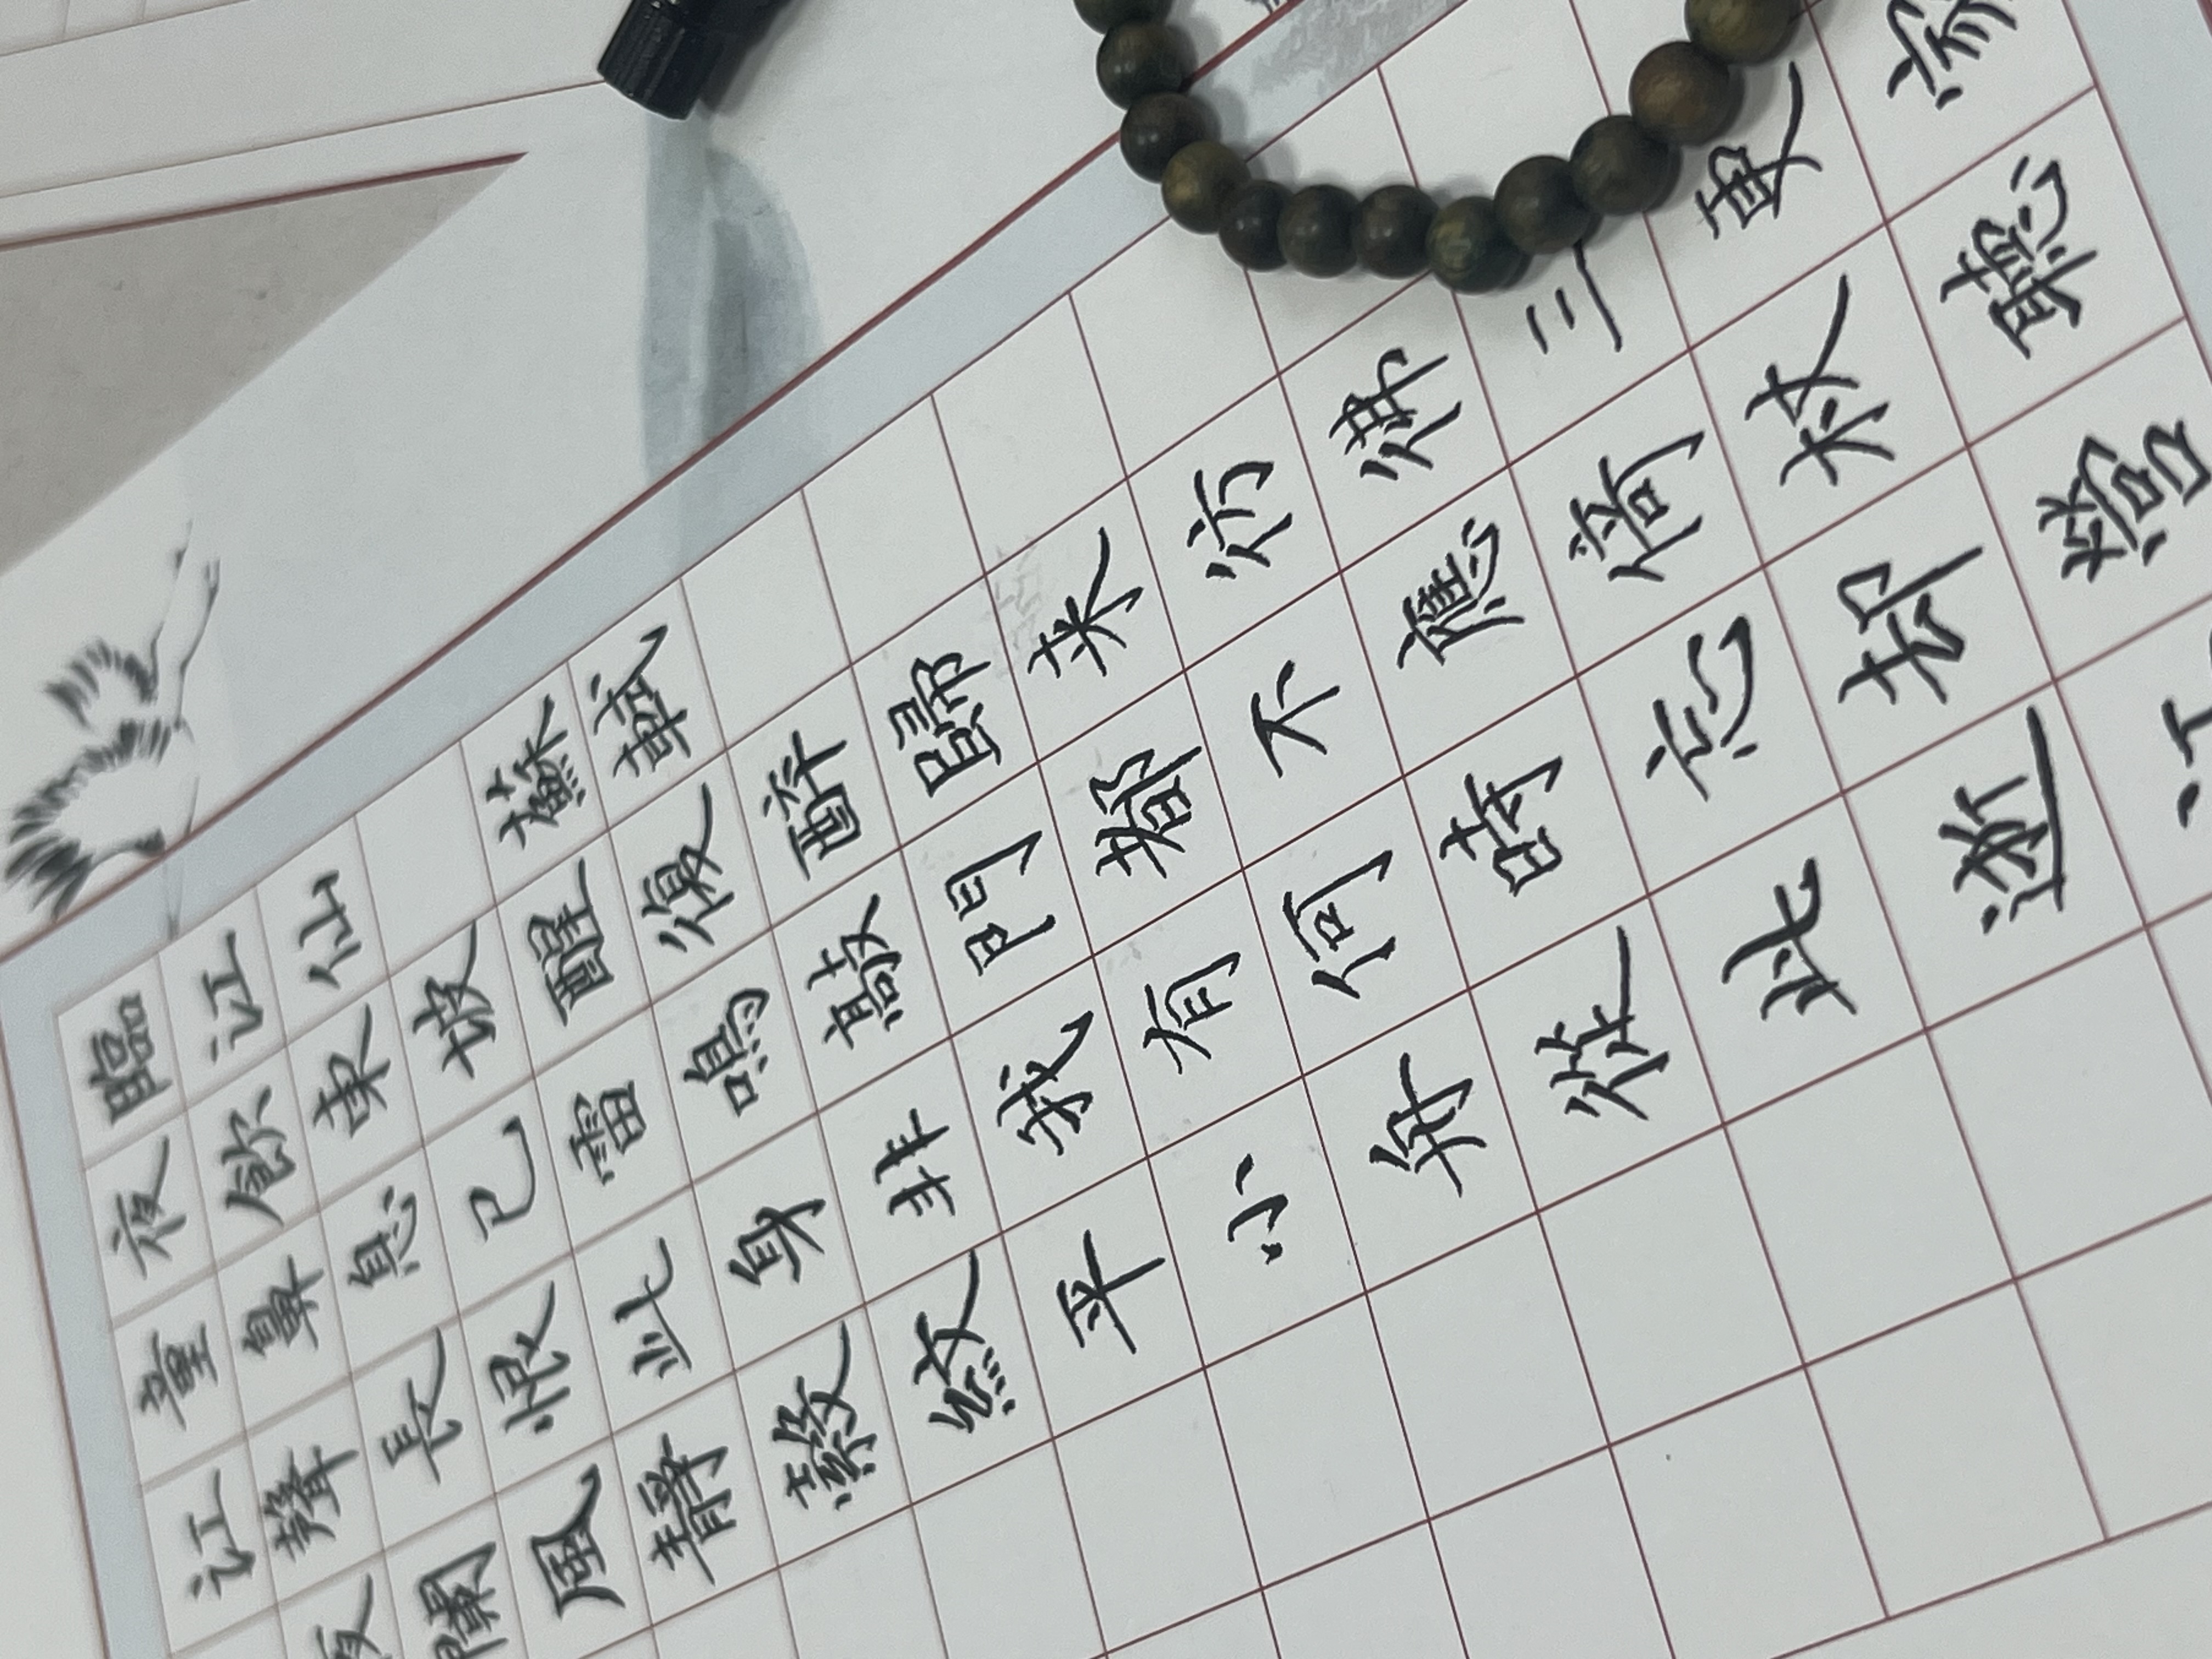 臨江仙 蘇軾
夜飲東坡醒復醉歸来彷彿三更家
童鼻息已雷鳴敲門都不應倚杖聽
江聲長恨此身非我有何時忘却營
夜闌風靜縠紋平小舟從此逝江